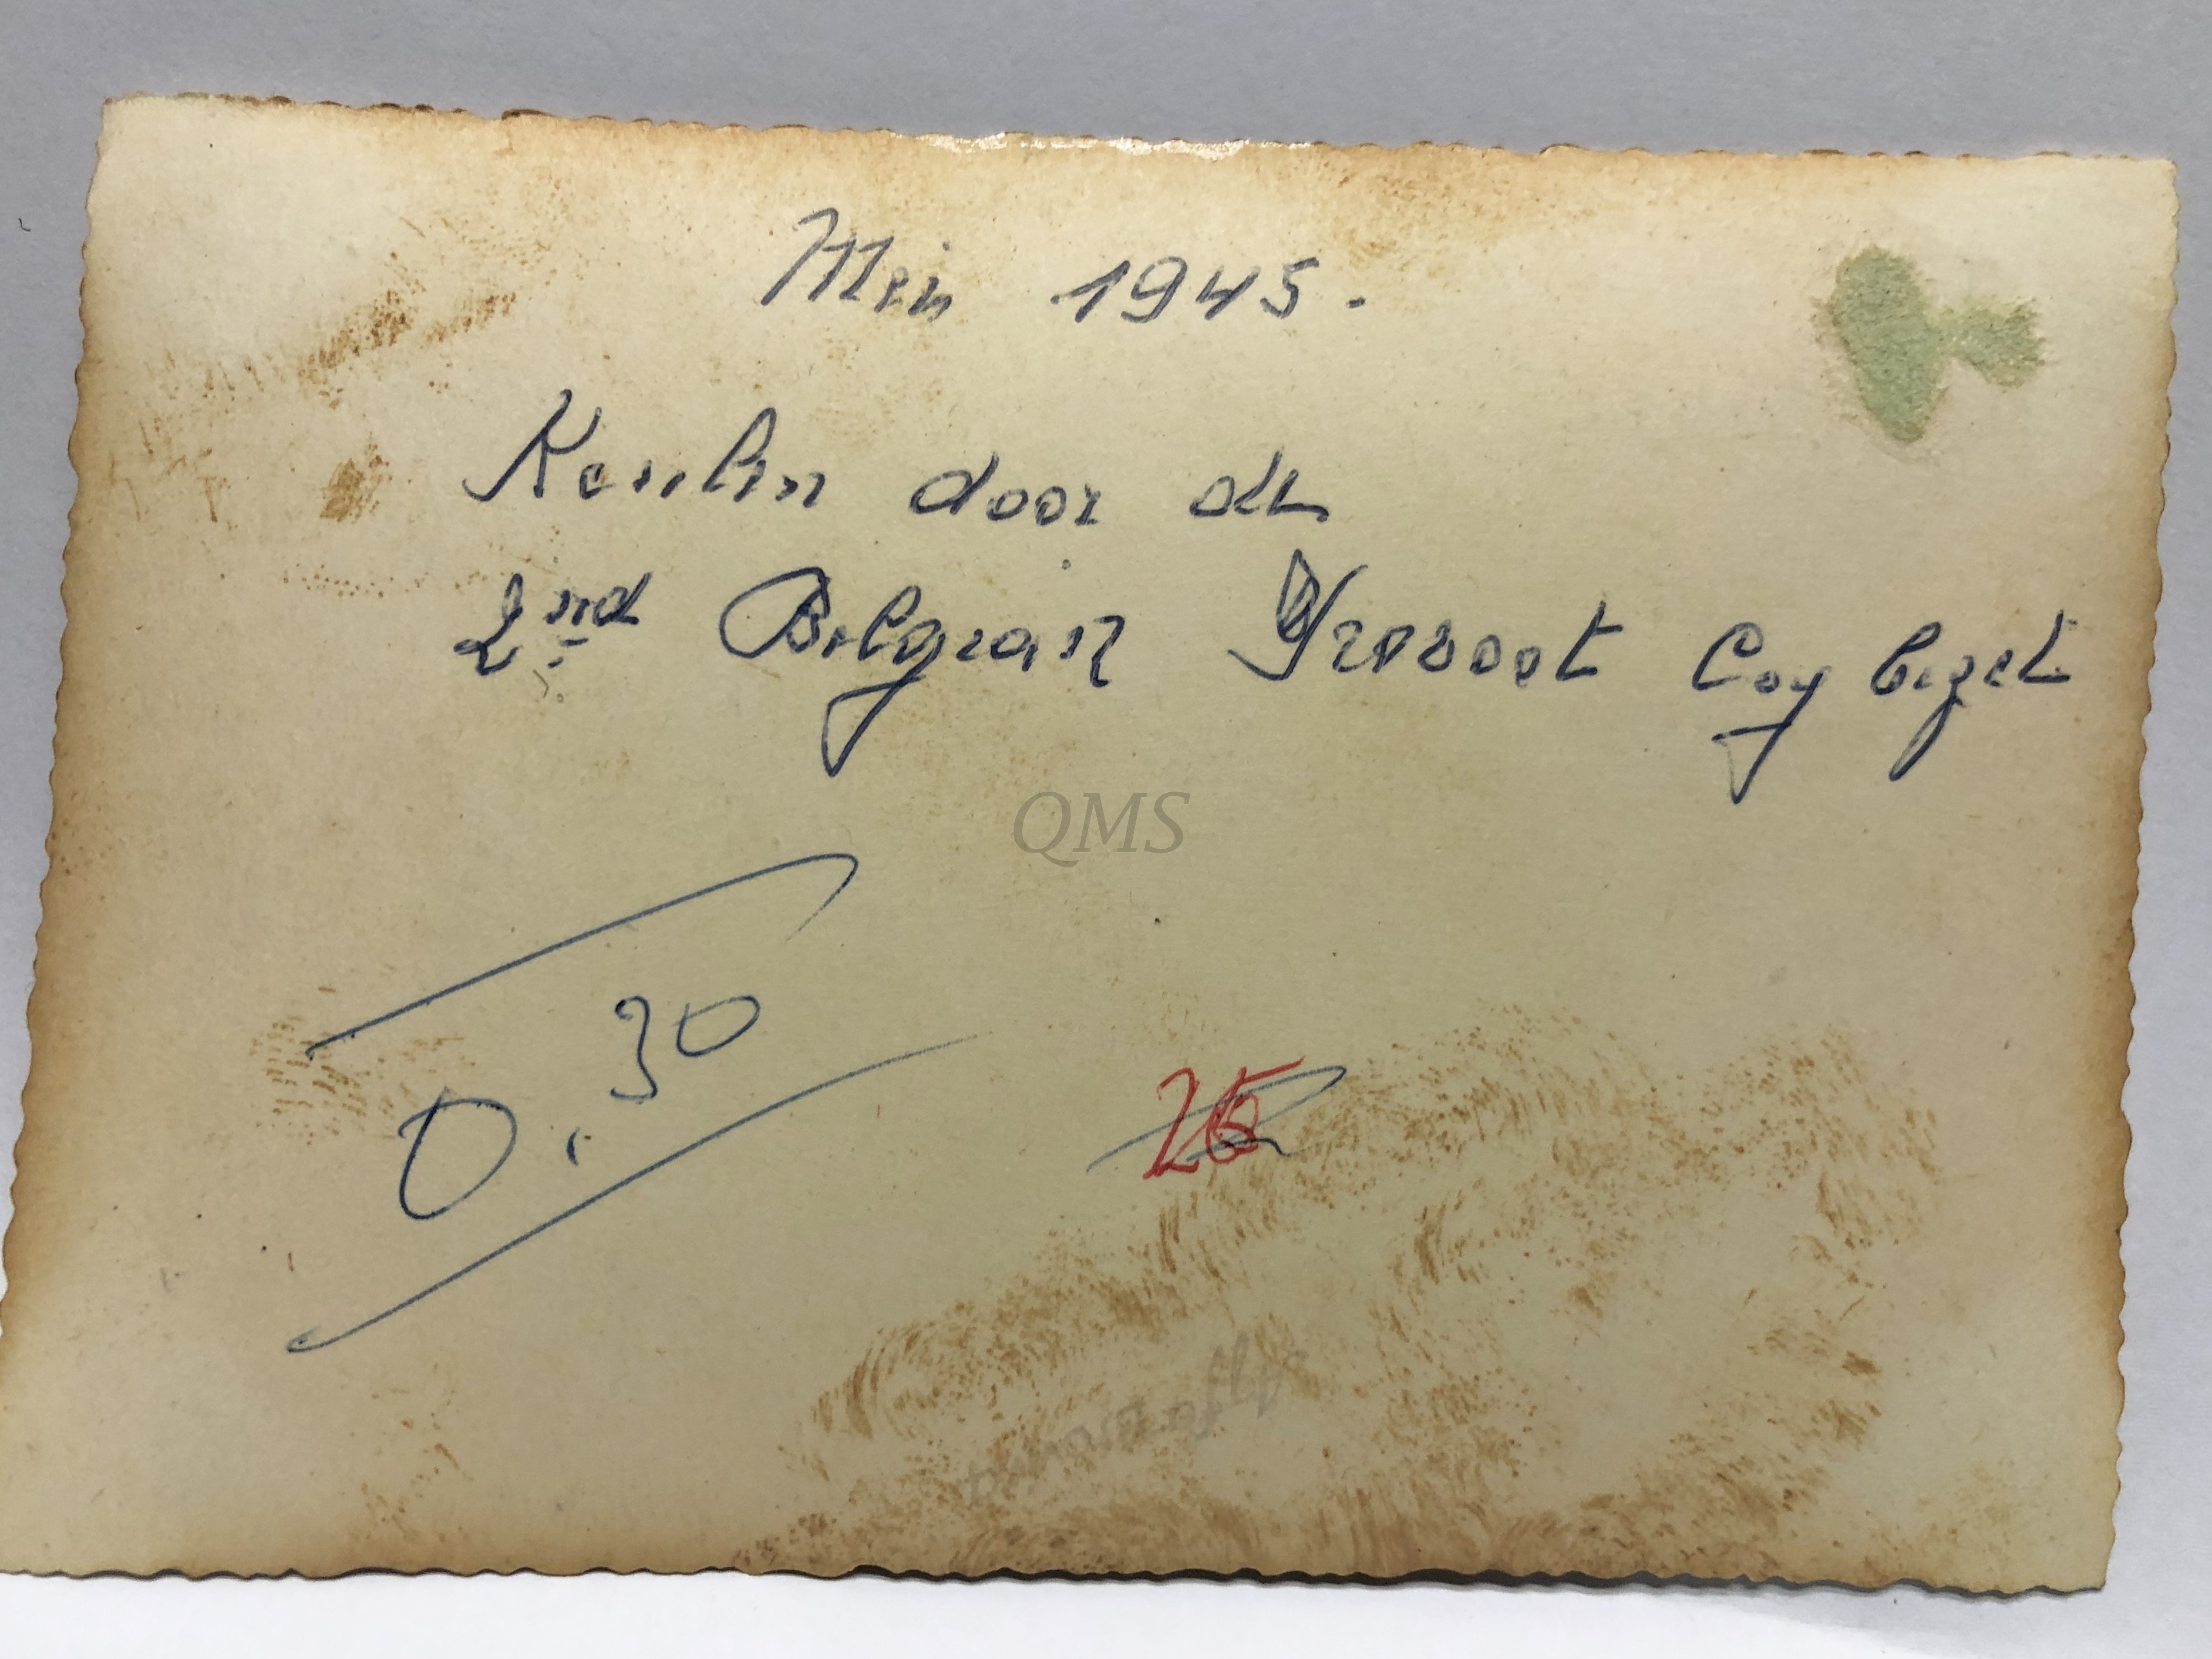 Mei 1945.
Keulen door de
2nd Belgian Provost Coy bezet
QMS
0,30
25